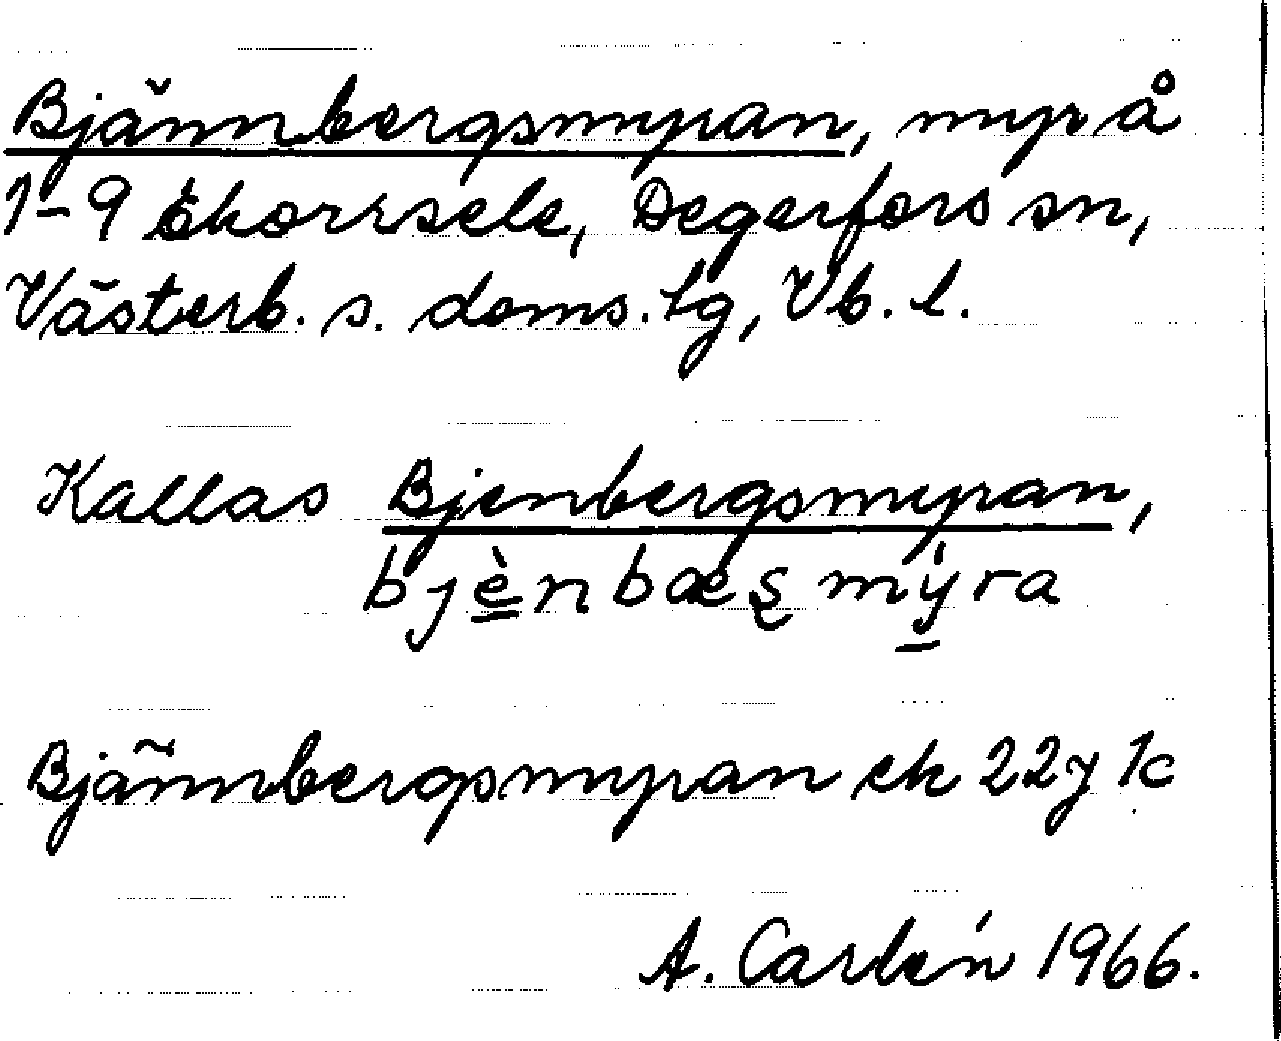 Bjännbergsmyran, myr å
1-9 Ekorrsele, Degerfors sn,
Västerb. s. doms. tg, Vb. l.
Kallas Bjenbergsmyran,
bjènbæʂmýra
Bjännbergsmyran ek 22y 1c
A. Carlén 1966.